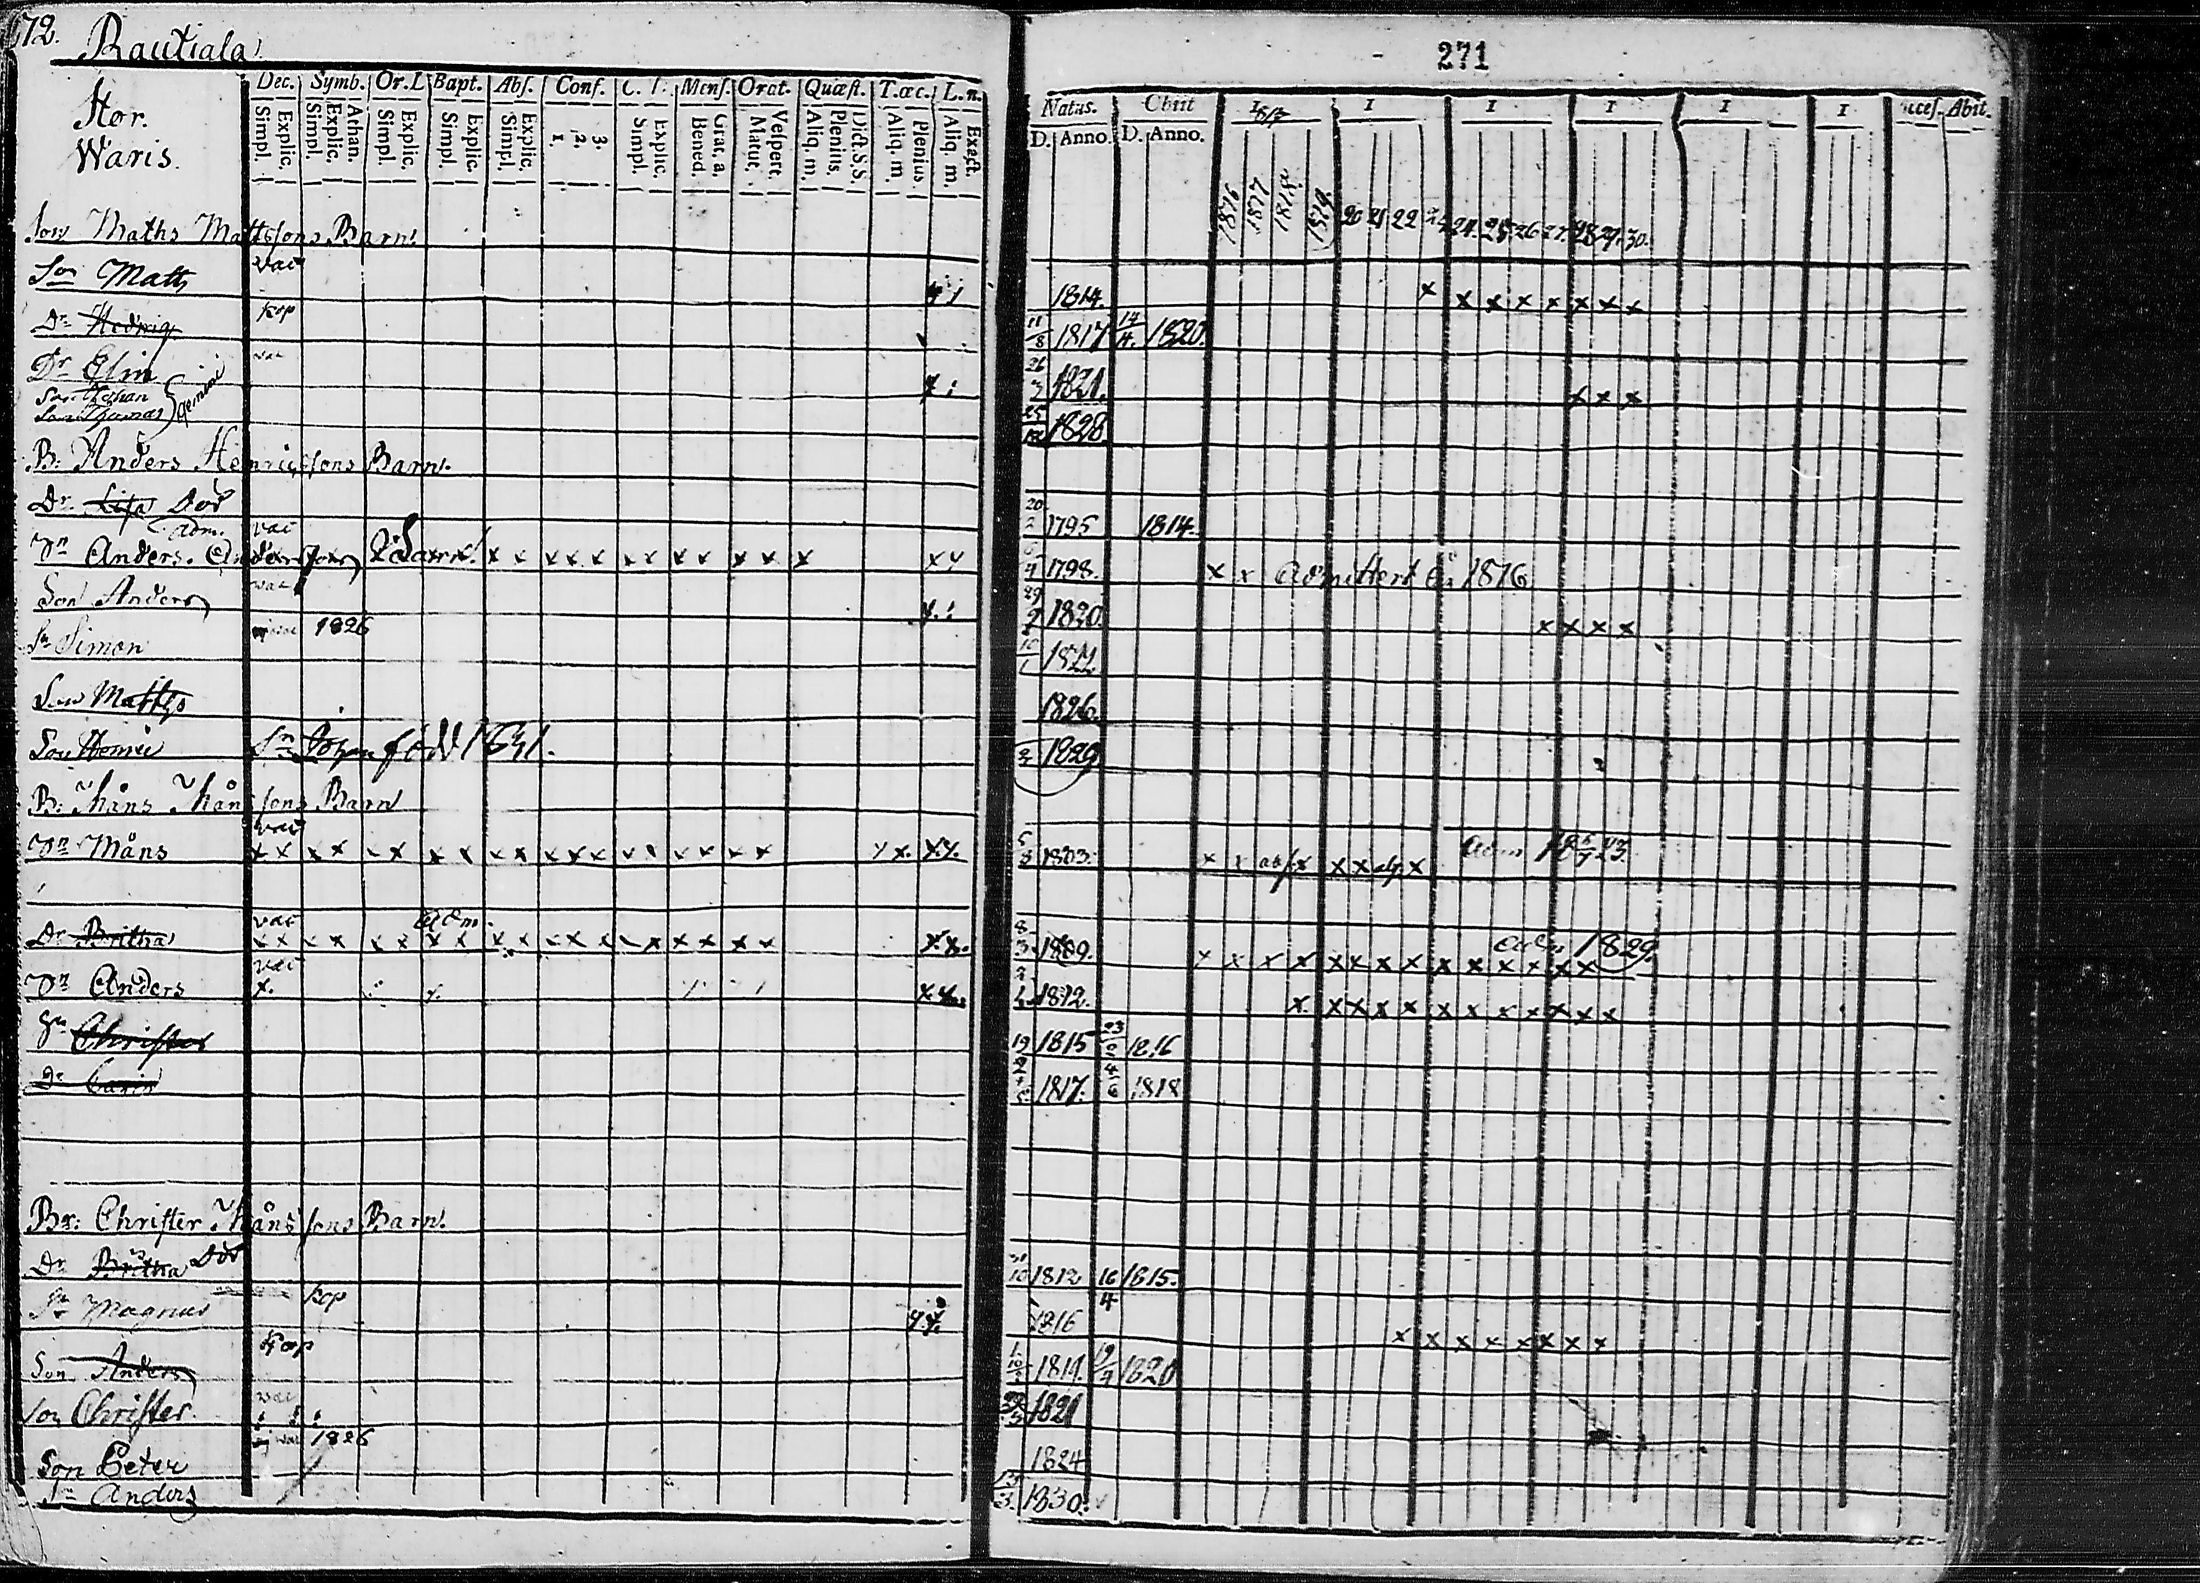 172. Rautiala
271
Hor.
Waris.
Dec. Symb. Or. D Bapt. Abs. Conf. C. Mens. Orat. Quæst. Tæc. L. n.
Simpl. Explic. Simpl. Explic. Athan. Simpl. Explic. Simpl. Explic. Simpl. Explic. 1. 2. 3. Simpl. Explic. Bened. Grat. a. Matut. Vespert. Aliq. m. Plenius. Dict. S. S. Aliq. m Plenius Aliq. m. Exact.
Natus. Obiit 1817 1 1 1 1 1 Acces. Abit.
D. Anno. D. Anno.
1816 1817 1818 1819 20 21 22 24. 25 26 27. 28 29. 30.
Son Maths Mattssons Barn.
Son Matts vac x 1814. x x x x x x x x
Dr Hedwig kop 11/8 1817 14/4. 1820.
Dr Elin vac 26/3 1821. x x x
Son Johan
Son Thomas gemini 1828
B: Anders Henricssons Barn.
Dr. Lisa Död 20/2 1795 1814.
Adm. vac
Sn Anders. Andersson Barn! x x x x x x x x x x x x x x 1798. x x Admittert år 1816
Son Anders vac 29/9 1820. x x x x
Sn Simon 1826 1822
Son Matts 1826.
Son Henric Sn Johan född 1831. 1829
B: Måns Månssons Barn
Sn Måns vac x x x x x x x x x x x x x x x x x x x x x x x 5/8 1803. x x abs x x x abs x Adm. 1823.
Dr Britha vac adm. x x x x x x x x x x x x x x x x x x x x x 8/3 1809. x x x x x x x x x x x x x x adm 1829
Sn Anders vac x. x x x 1812. x x x x x x x x x x x
Sn Christer 19/2 1815 23/2 1816
Dr Carin 1817. 4/6 1818
Br: Christer Månssons Barn.
Dr Britha Död 1812 16/4 1815.
Sn Magnus kop x x 1816 x x x x x x x x
Son Anders kop 1819. 1820
Son Christer vac 1821
Son Peter 1826 1824
Sn Anders 13/3 1830.